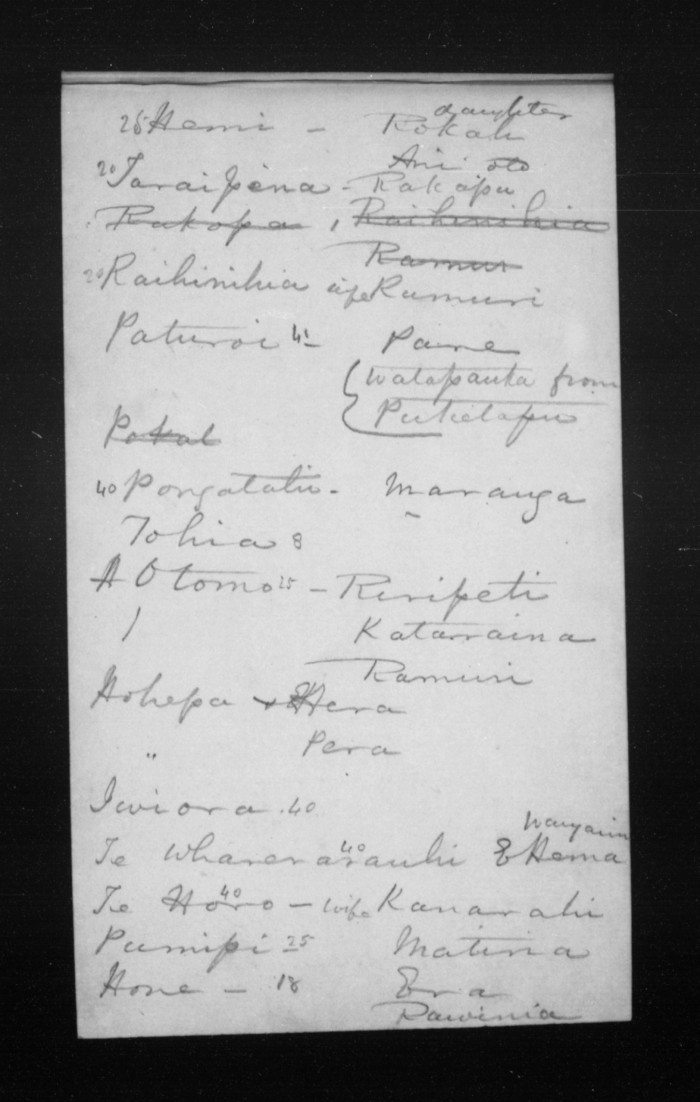 daughter
25 Hemi - Rokah
Ani
20 Taraipena - Rakapa
Rakopa , Raihinihia
Ramuri
20 Raihinihia wife Ramuri
Paturoi 41 - Paine
Watapauta from
Puketapu
Pokal
40 Pongatahi - Maranga
Tohia 8
A Otomo 25 - Ruripeti
Katarraina
Ramuri
Hohepa + Hera
" Pera
Iwiora . 40
Te Wharerarauhi 40 E Hema
Te Horo 40 - wife Kanarahi
Pumipi 25 Matina
Hone - 18 Era
Rawinia